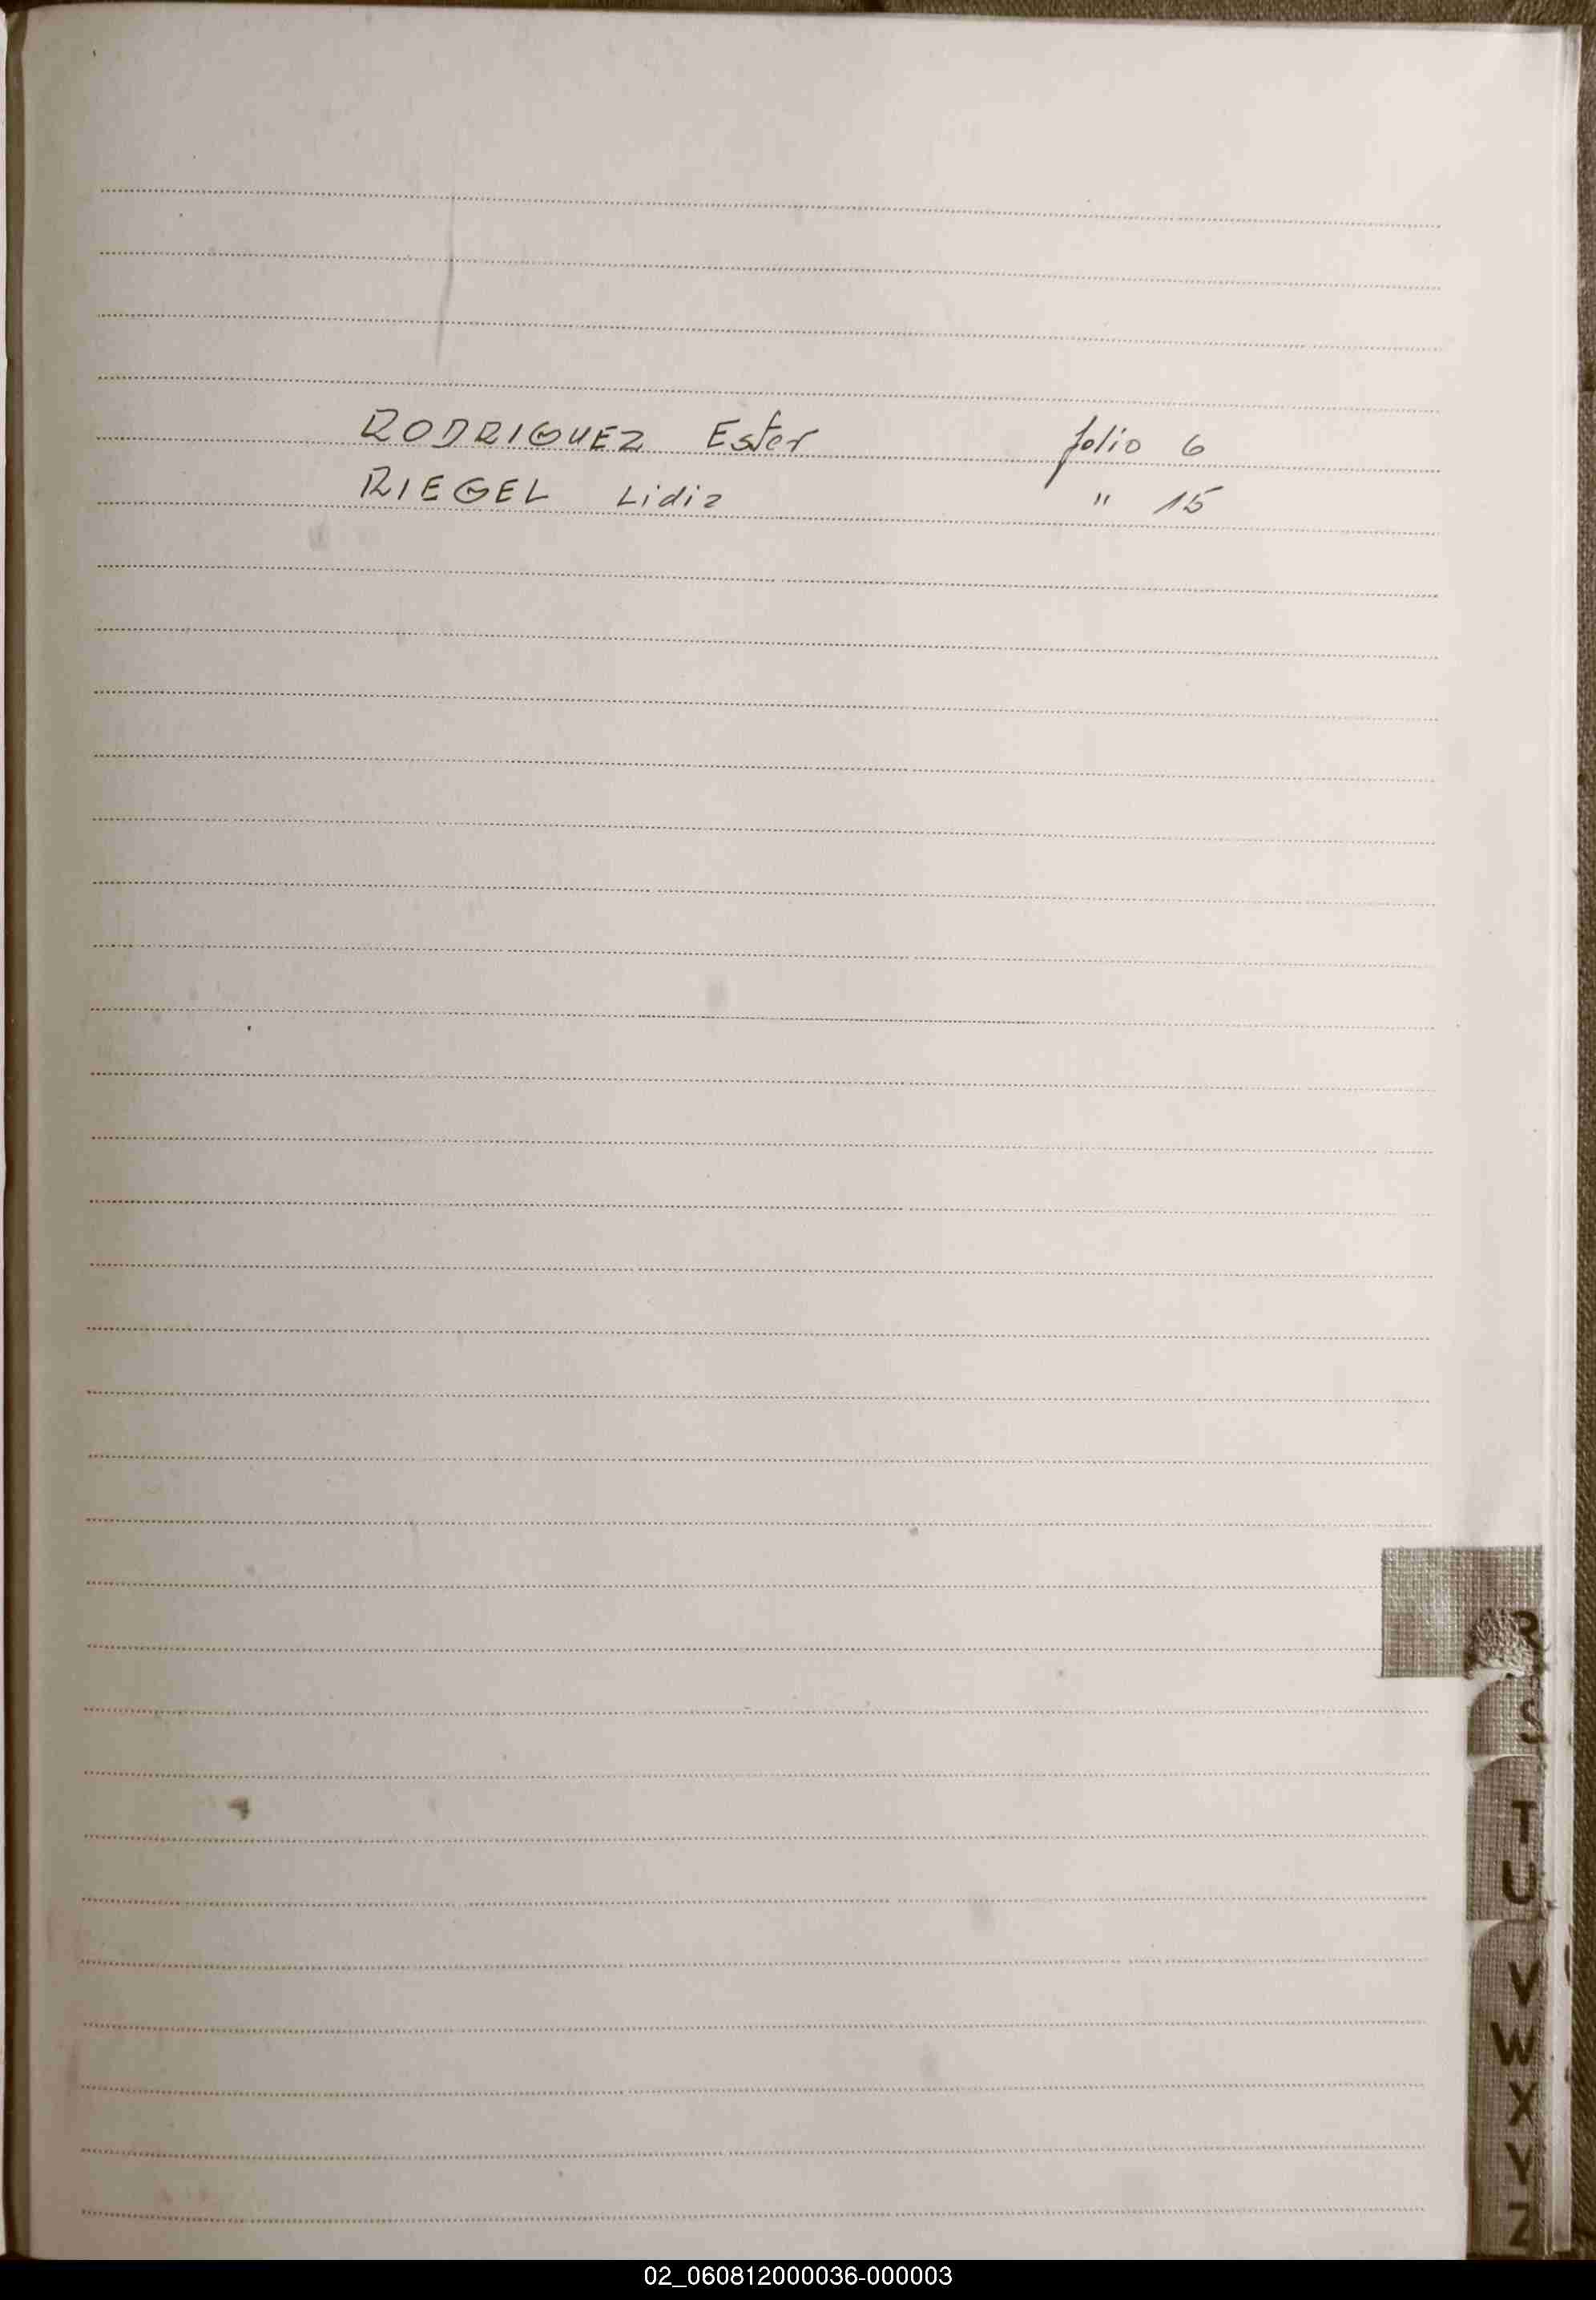 RODRIGUEZ Ester folio 6
RIEGEL Lidia " 15
R
S
T
U
V
W
X
Y
Z
02_060812000036-000003